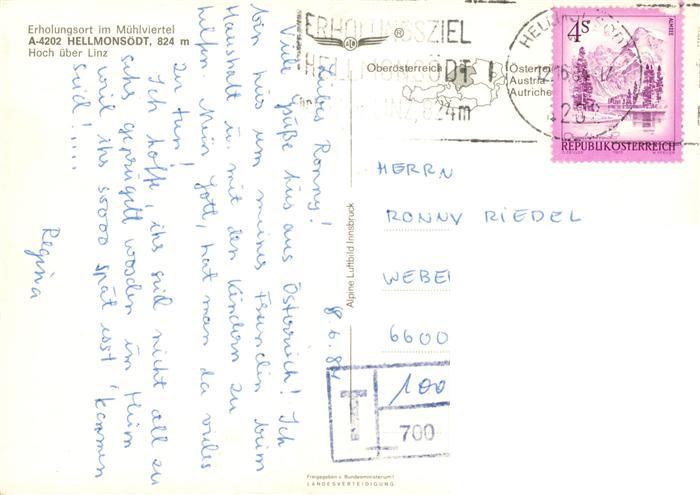 Erholungsort im Mühlviertel
A-4202 HELLMONSÖDT, 824 m
Hoch über Linz
8.6.84
Liebes Ronny!
Viele Grüße hier aus Österreich! Ich
bin hier um meiner Freundin beim
Haushalt u. mit den Kindern zu
helfen. Mein Gott, hat man da vieles
zu tun!
Ich hoffe, ihr seid nicht all zu
sehr geprügelt worden im Heim
weil ihr soooo spät erst kommen
seid!....
Regina
Alpine Luftbild Innsbruck
ERHOLUNGSZIEL
HELLMONSÖDT
LINZ, 824m
®
Oberösterreich
Österreich
Austria
Autriche
HELLMONSÖDT
4S
ALMSEE
REPUBLIK ÖSTERREICH
HERRN
RONNY RIEDEL
WEBE
6600
T
100
700
Freigegeben v. Bundesministerium f.
LANDESVERTEIDIGUNG